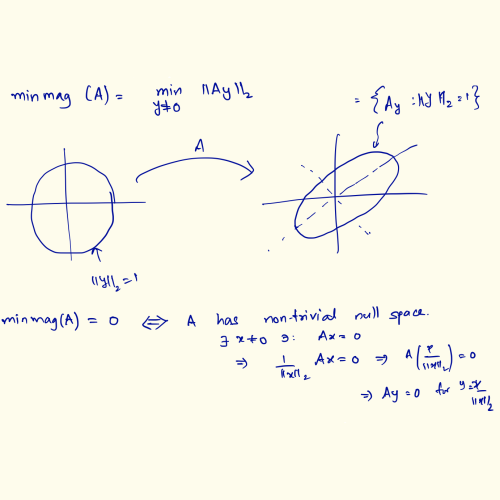 min mag (A) = min ||Ay||₂
y≠0
= {Ay : ||y||₂ = 1}
A
||y||₂ = 1
min mag(A) = 0 ⟺ A has non-trivial null space.
∃ x≠0 ∋: Ax = 0
⇒ 1/||x||₂ Ax = 0 ⇒ A(x/||x||₂) = 0
⇒ Ay = 0 for y = x/||x||₂